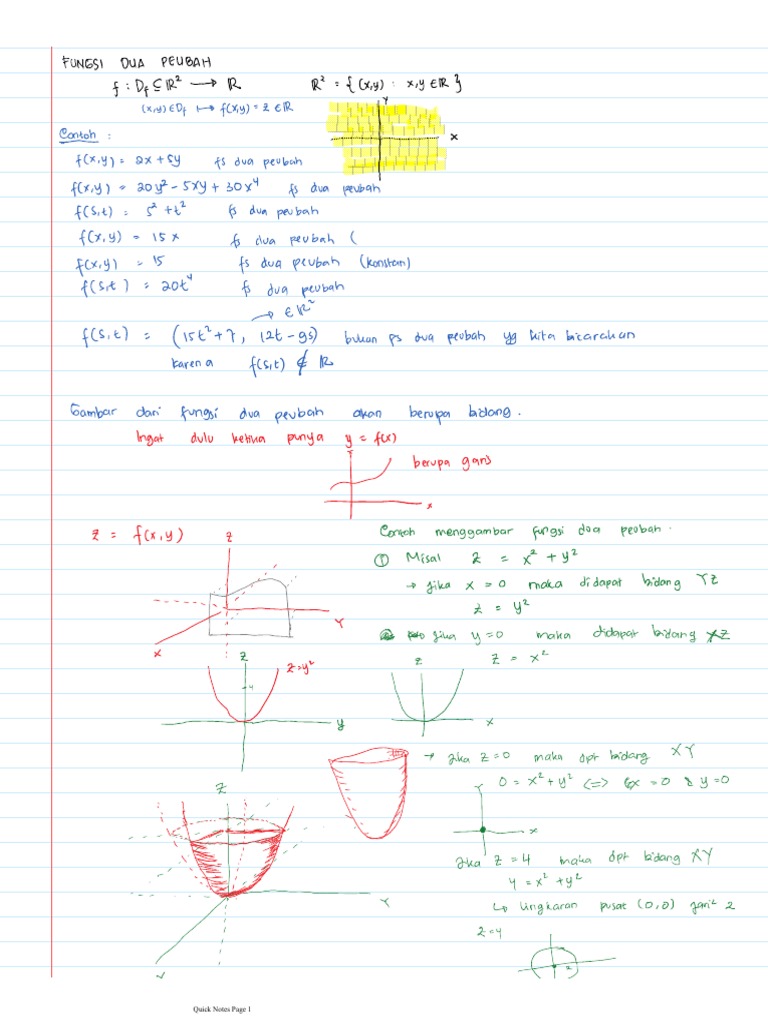 FUNGSI DUA PEUBAH
f : D_f ⊆ ℝ² ⟶ ℝ
ℝ² = { (x,y) : x,y ∈ ℝ }
(x,y) ∈ D_f ⟼ f(x,y) = z ∈ ℝ
Y
X
Contoh :
f(x,y) = 2x + 5y fs dua peubah
f(x,y) = 20y² - 5xy + 30x⁴ fs dua peubah
f(s,t) = s² + t² fs dua peubah
f(x,y) = 15 x fs dua peubah (
f(x,y) = 15 fs dua peubah (konstan)
f(s,t) = 20t⁴ fs dua peubah
→ ∈ ℝ²
f(s,t) = (15t² + 7, 12t - 9s) bukan fs dua peubah yg kita bicarakan
karena f(s,t) ∉ ℝ
Gambar dari fungsi dua peubah akan berupa bidang.
Ingat dulu ketika punya y = f(x)
Y
berupa garis
x
z = f(x,y)
z
Y
x
Contoh menggambar fungsi dua peubah.
① Misal z = x² + y²
→ Jika x = 0 maka didapat bidang YZ
z = y²
Jika y = 0 maka didapat bidang XZ
z = x²
z
4
z = y²
y
z
x
→ Jika z = 0 maka dpt bidang XY
0 = x² + y² <=> x = 0 & y = 0
Y
x
Jika z = 4 maka dpt bidang XY
4 = x² + y²
↳ lingkaran pusat (0,0) jari² 2
z = 4
2
Z
Y
Quick Notes Page 1